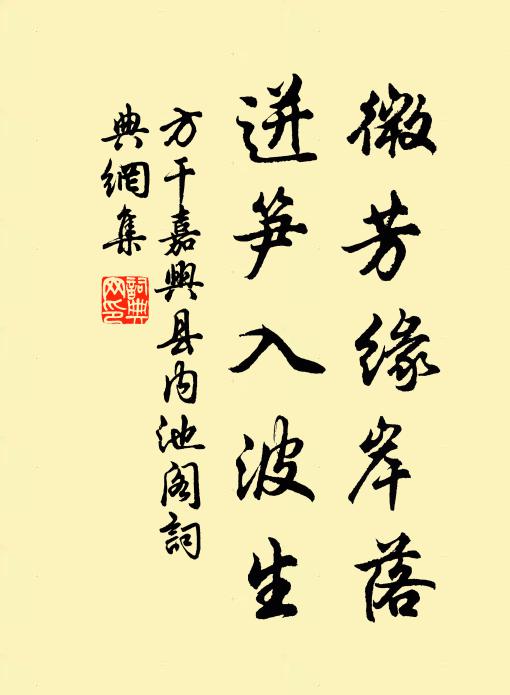 微芳缘岸落
迸笋入波生
方干嘉興县内池阁詞
典網集
詞典
网印